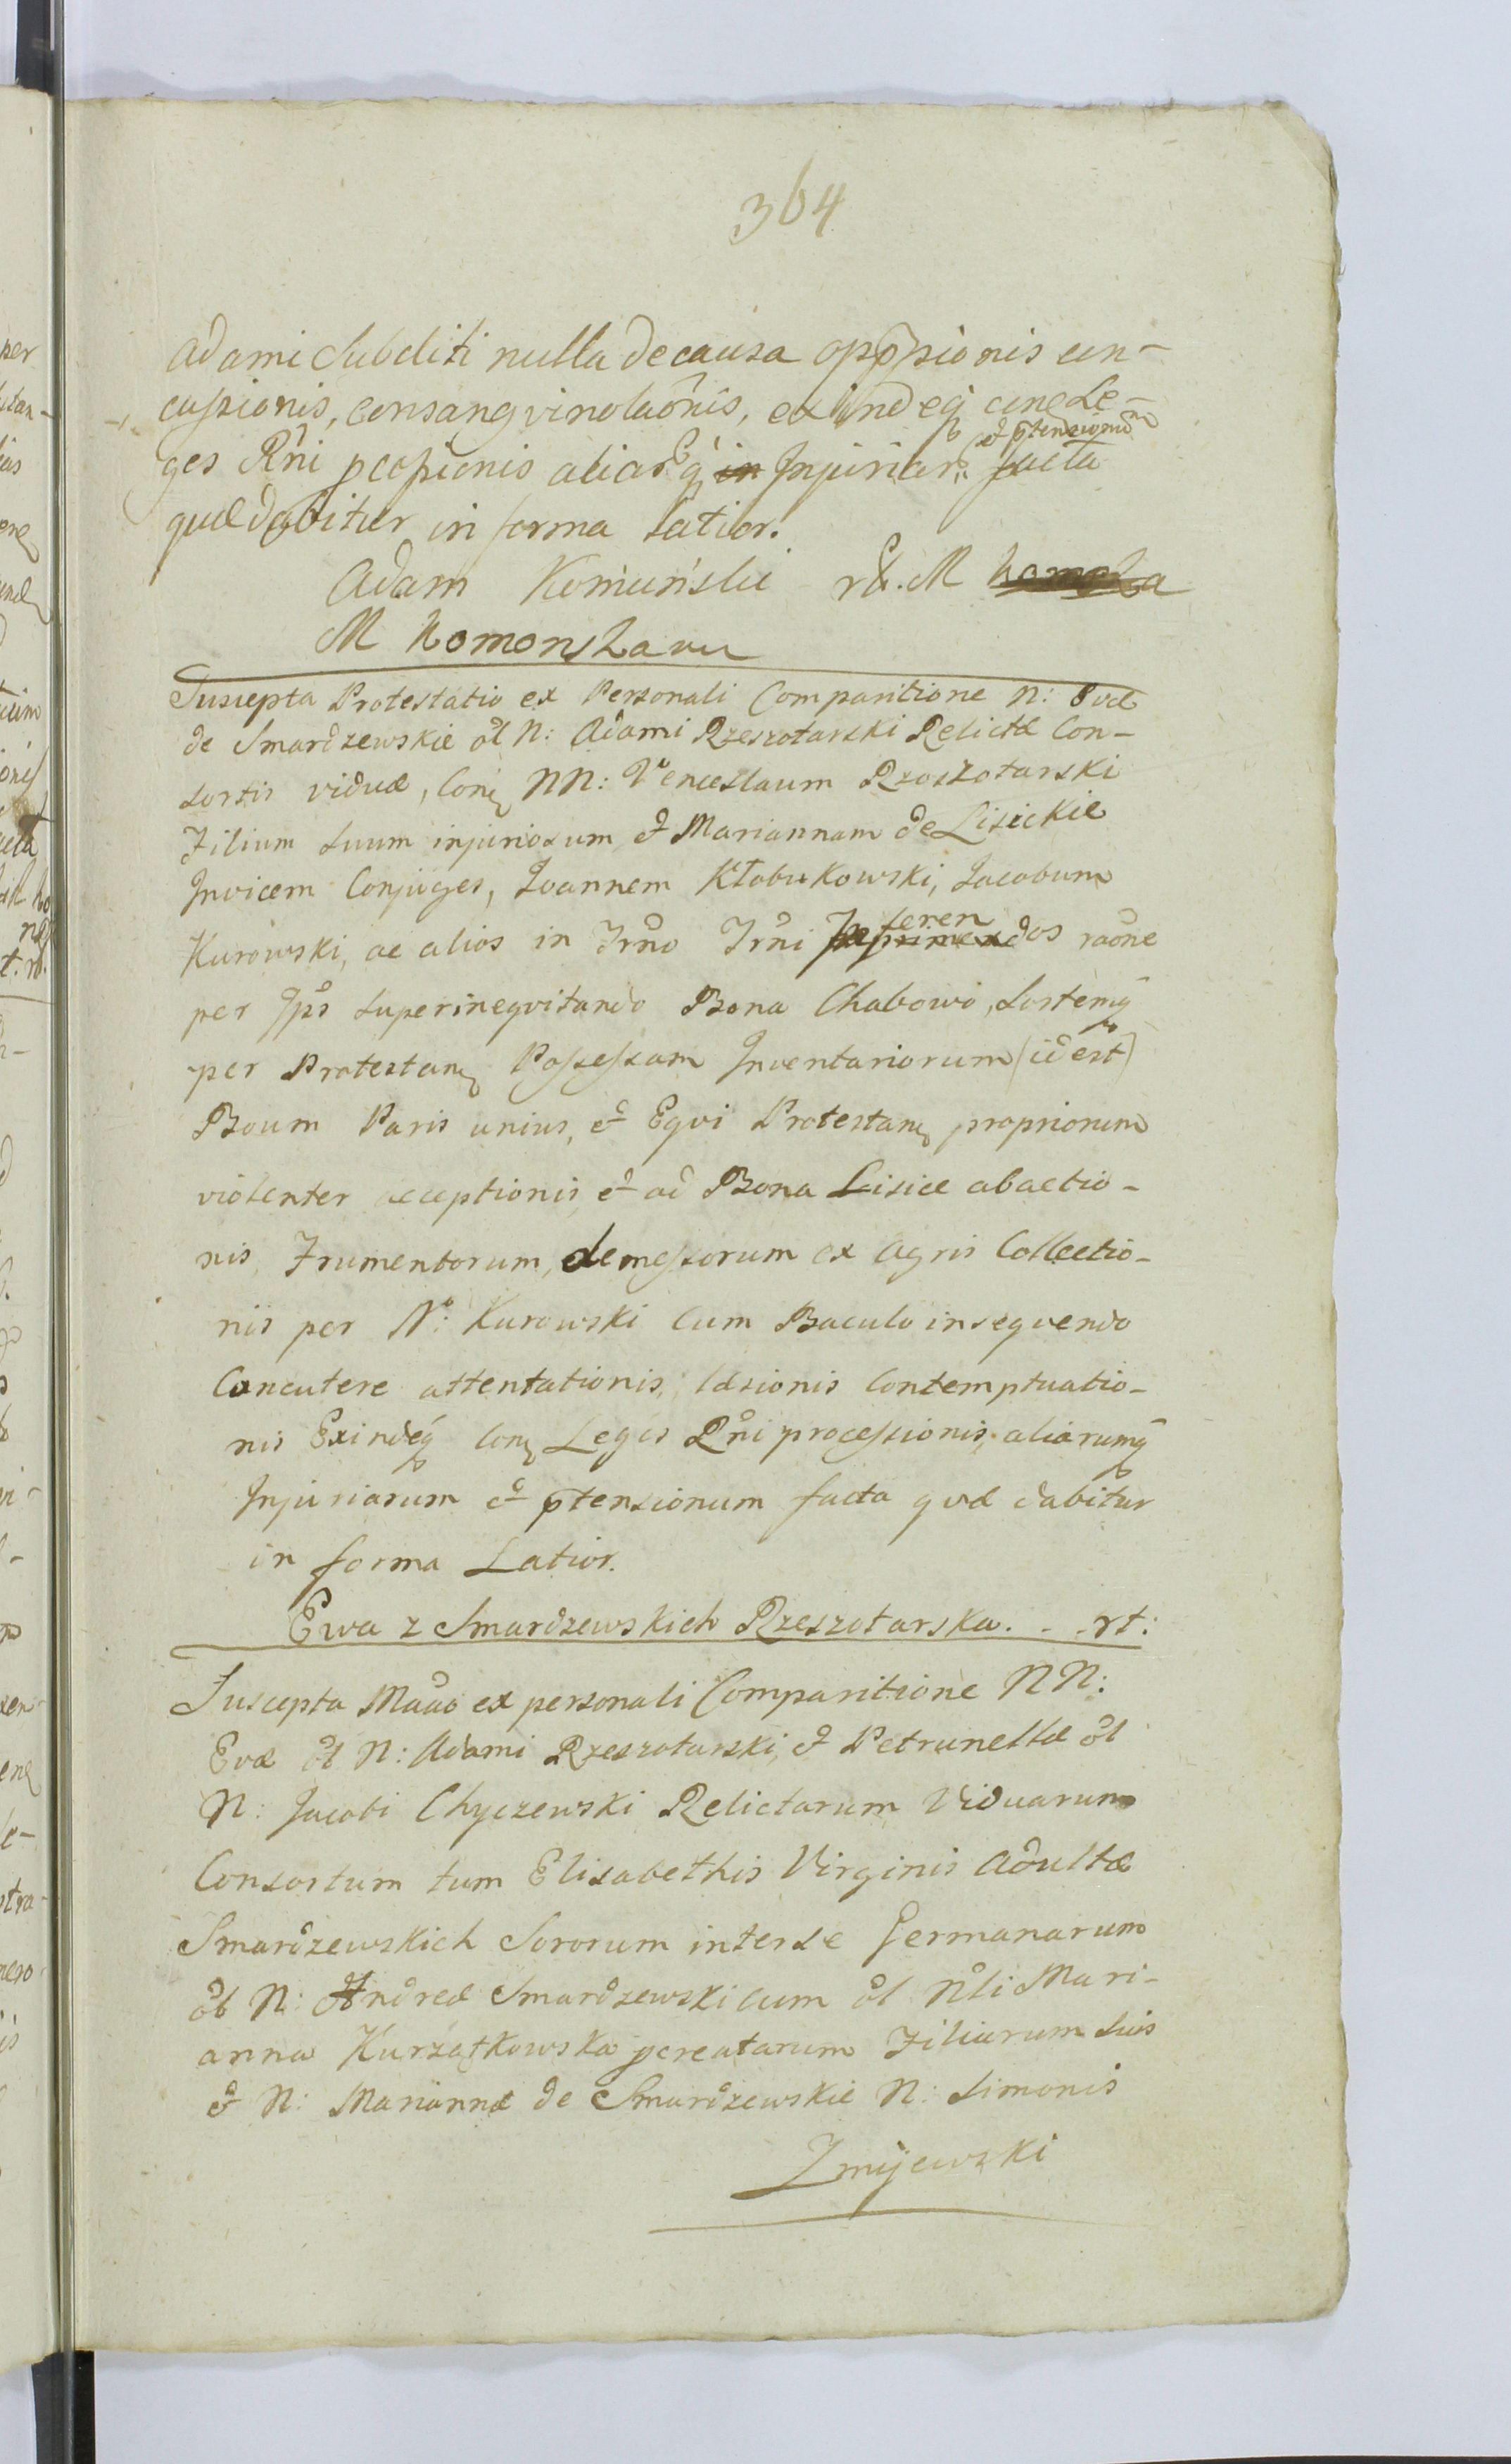 364
Adami Subditi nulla de causa opp̄sionis con-
cussionis, consangvinolaõnis, exindeq́ cõne Le-
ges Rñi pcessionis aliarq́ Injuriar: et p̄tensionũ facta
quæ dabitur in forma latior.
Adam Komuński rt. M
M Komonska mu
Suscepta Protestatio ex Personali Comparitione N: Evæ
de Smardzewskie ol N: Adami Rzeszotarski Relictæ Con-
sortis viduæ, Con̨ NN: Venceslaum Rzoszotarski
Filium suum injuriosum et Mariannam de Lisickie
Invicem Conjuges, Joannem Kłobukowski, Jacobum
Kurowski, ac alios in Trño Trñi inferendos raõne
per Ip̃s superineqvitando Bona Chabowo, Sortemq́
per Protestan̨ Possessam Inventariorum (id est)
Boum Paris unius, et Eqvi Protestan̨ propriorum
violenter acceptionis, et ad Bona Lisice abactio-
nis, Frumentorum, demessorum ex Agris Collectio-
nis per N: Kurowski Cum Baculo inseqvendo
Concutere attentationis, læsionis Contemptuatio-
nis Exindeq́ Con̨ Leges Rñi processionis, aliarumq́
Injuriarum et p̄tensionum facta qvæ dabitur
in forma Latior.
Ewa z Smardzewskich Rzeszotarska. - - rt:
Suscepta Mãão ex personali Comparitione NN:
Evæ ol N: Adami Rzeszotarski, et Petrunellæ ol
N: Jacobi Chyczewski Relictarum Viduarum
Consortum tum Elisabethis Virginis Adultæ
Smardzewskich Sororum inter se Germanarum
ol N: Andreæ Smardzewski cum ol Nli Mari-
anna Kurzątkowska pcreatarum Filiarum suis
et N: Mariannæ de Smardzewskie N: Simonis
Zmijewski